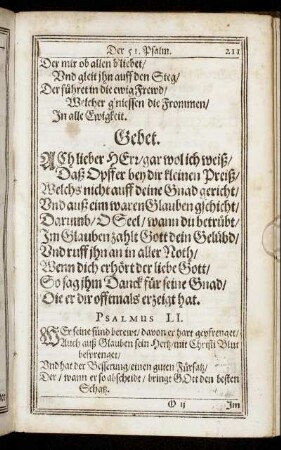 Der 51. Psalm. 211
Der mir ob allen b'liebet/
Vnd gleit jhn auff den Steg/
Der führet in die ewig Frewd/
Welcher g'niessen die Frommen/
In alle Ewigkeit.
Gebet.
ACh lieber HErr/ gar wol ich weiß/
Daß Opffer bey dir kleinen Preiß/
Welchs nicht auff deine Gnad gericht/
Vnd auß eim waren Glauben gschicht/
Darumb/ O Seel/ wann du betrübt/
Im Glauben zahlt Gott dein Gelübd/
Vnd ruff jhn an in aller Noth/
Wenn dich erhört der liebe Gott/
So sag jhm Danck für seine Gnad/
Die er dir offtemals erzeigt hat.
PSALMUS LI.
WEr seine sünd berewt/ davon er hart geprenget/
Auch auß Glauben sein Hertz/ mit Christi Blut
besprenget/
Vnd hat der Besserung/ einen guten Fürsatz/
Der/ wann er so abscheidt/ bringt GOtt den besten
Schatz.
O ij Im